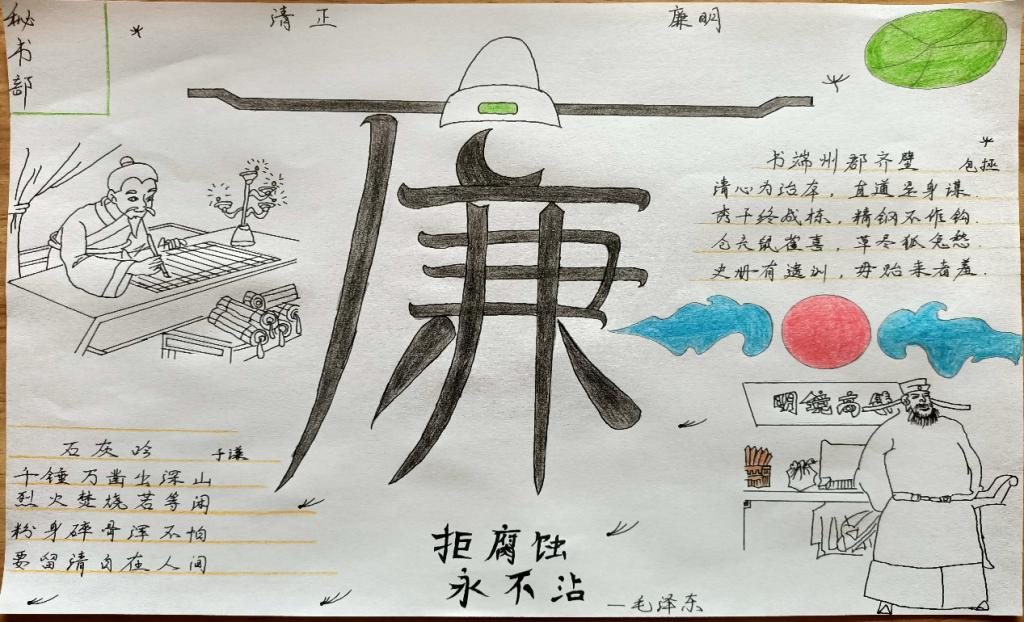 秘书部
清正 廉明
廉
书端州郡齐壁 包拯
清心为治本，直道是身谋.
秀干终成栋，精钢不作钩.
仓充鼠雀喜，草尽狐兔愁.
史册有遗训，毋贻来者羞.
明镜高悬
石灰吟 于谦
千锤万凿出深山
烈火焚烧若等闲
粉身碎骨浑不怕
要留清白在人间
拒腐蚀
永不沾
—毛泽东